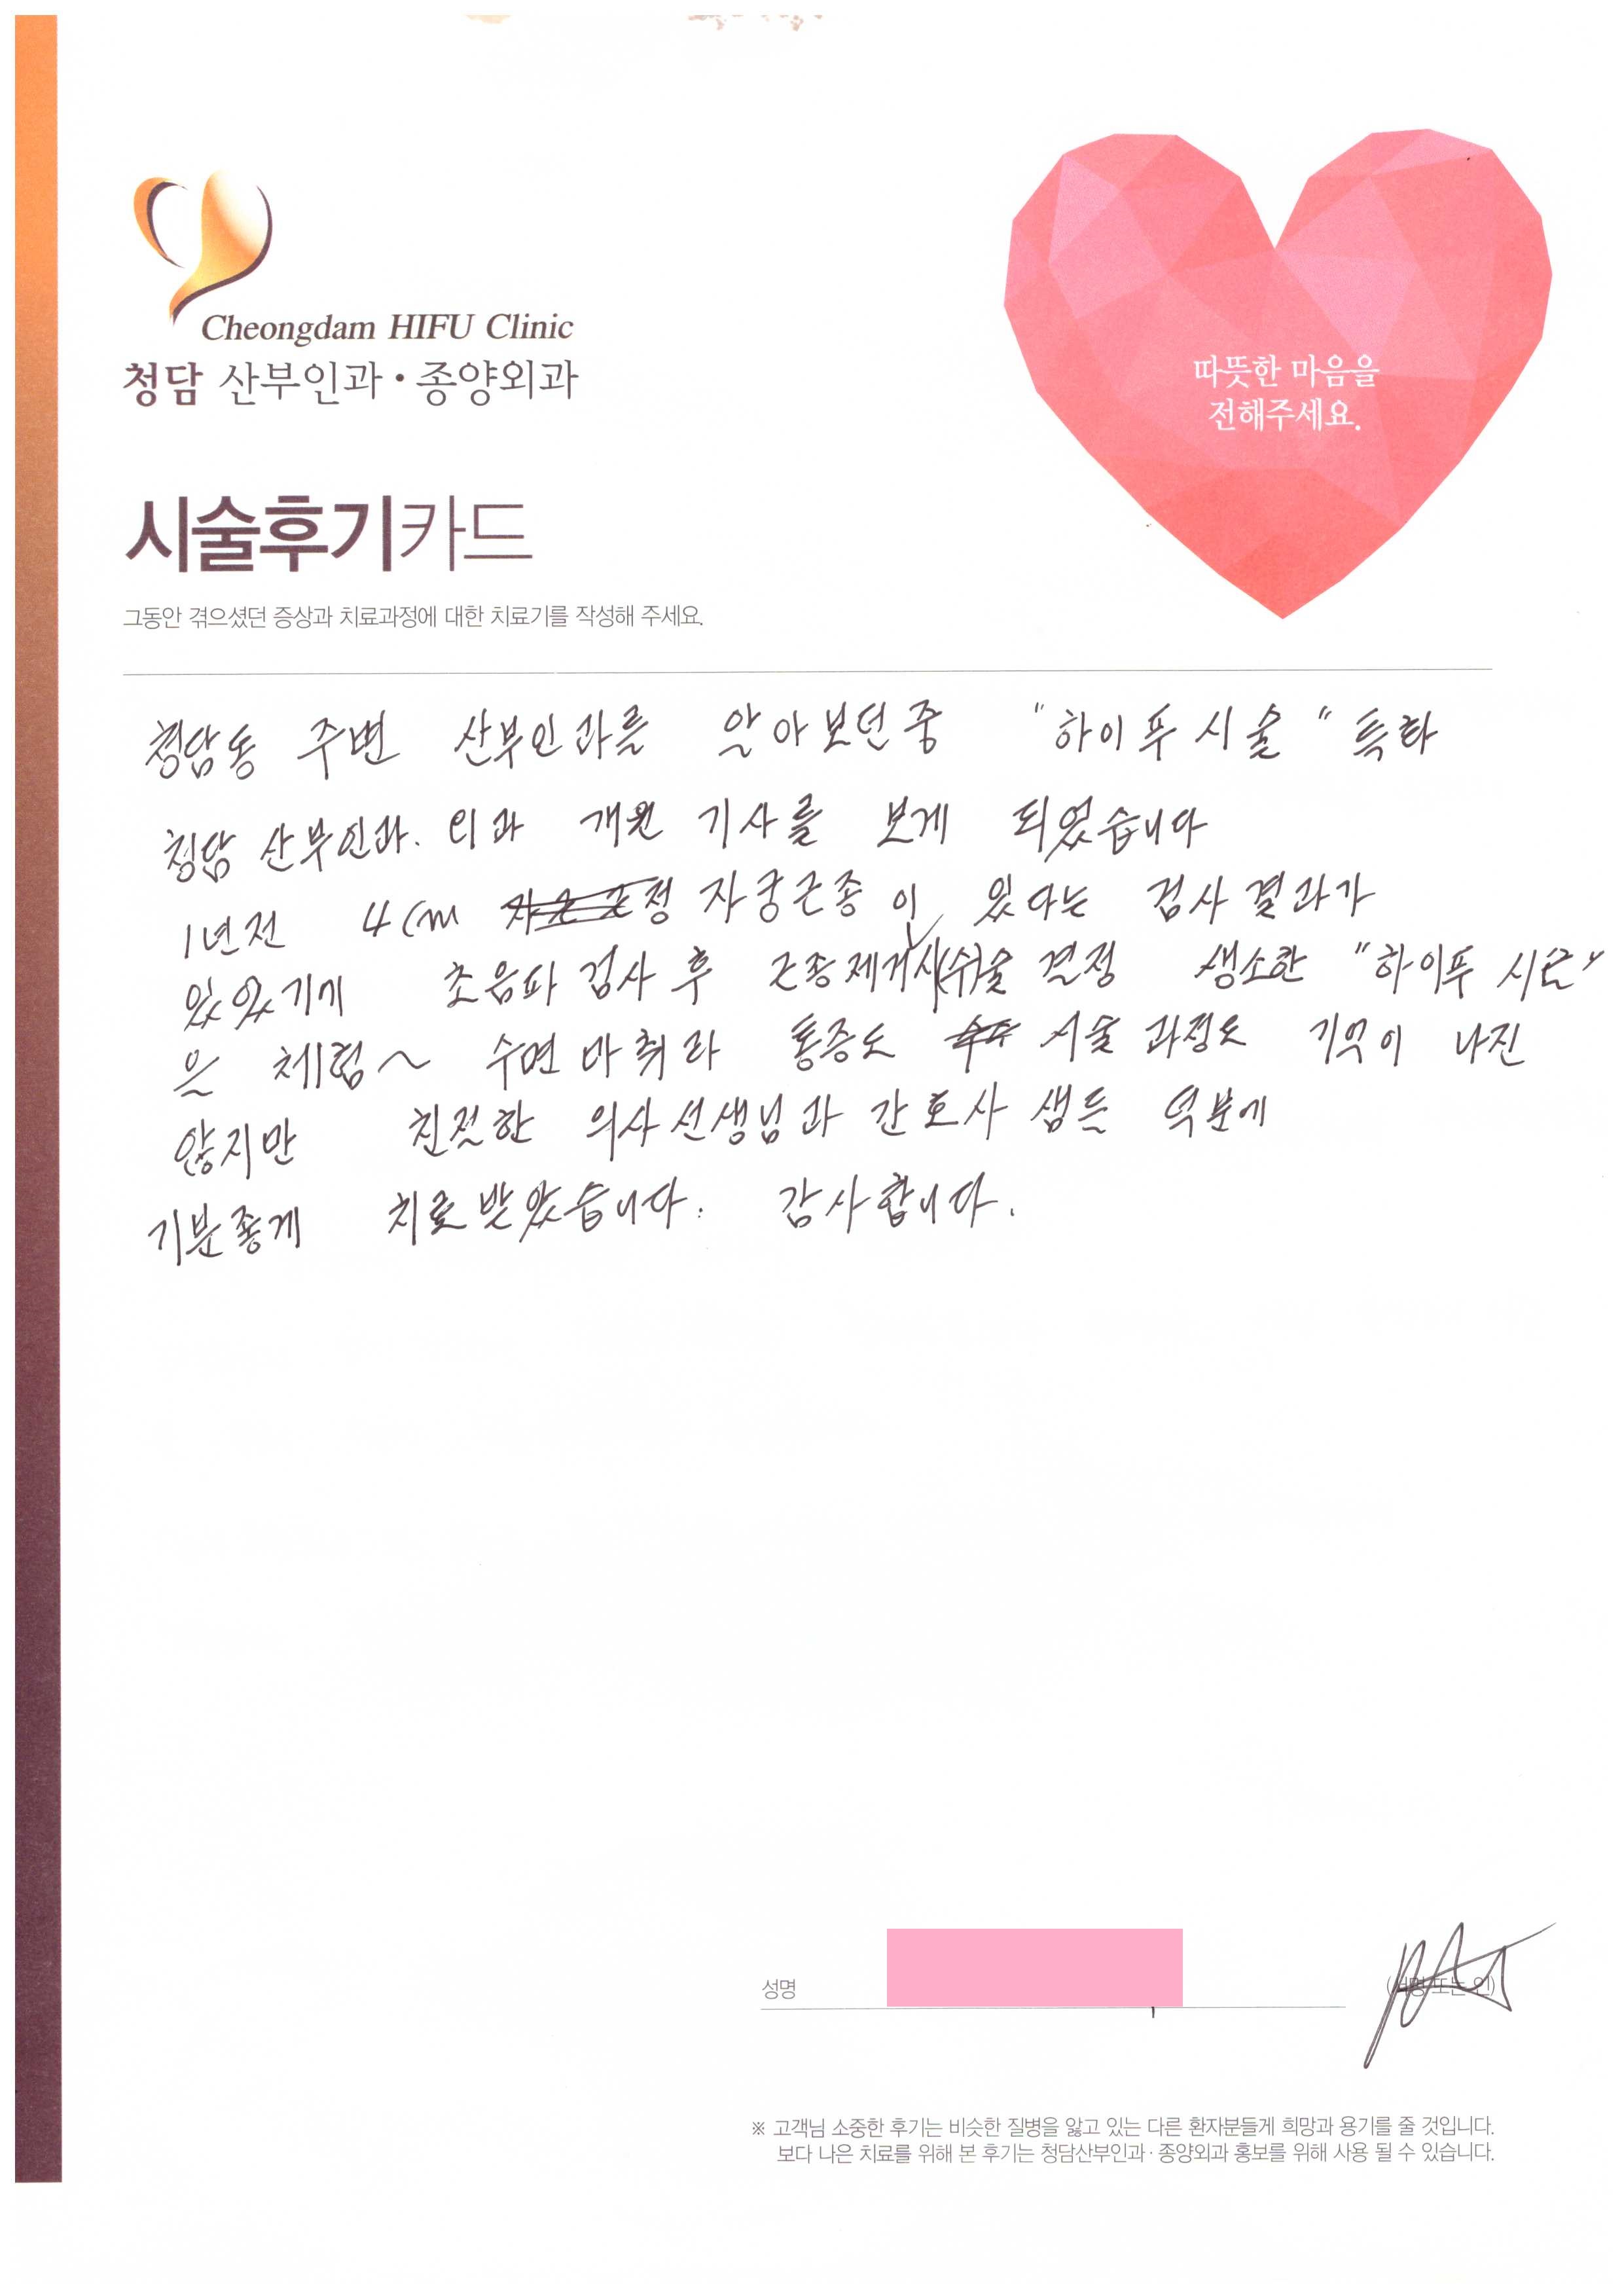 Cheongdam HIFU Clinic
청담 산부인과·종양외과
따뜻한 마음을
전해주세요.
시술후기카드
그동안 겪으셨던 증상과 치료과정에 대한 치료기를 작성해 주세요.
청담동 주변 산부인과를 알아보던중 "하이푸시술" 특화
청담 산부인과. 외과 개원 기사를 보게 되었습니다
1년전 4cm 정 자궁근종이 있다는 검사결과가
있었기에 초음파 검사 후 근종제거시(수)술 결정 생소한 "하이푸 시술"
은 체험~ 수면마취라 통증도 시술과정도 기억이 나진
않지만 친절한 의사선생님과 간호사 샘들 덕분에
기분좋게 치료받았습니다. 감사합니다.
성명
(서명 또는 인)
※ 고객님 소중한 후기는 비슷한 질병을 앓고 있는 다른 환자분들게 희망과 용기를 줄 것입니다.
보다 나은 치료를 위해 본 후기는 청담산부인과·종양외과 홍보를 위해 사용 될 수 있습니다.